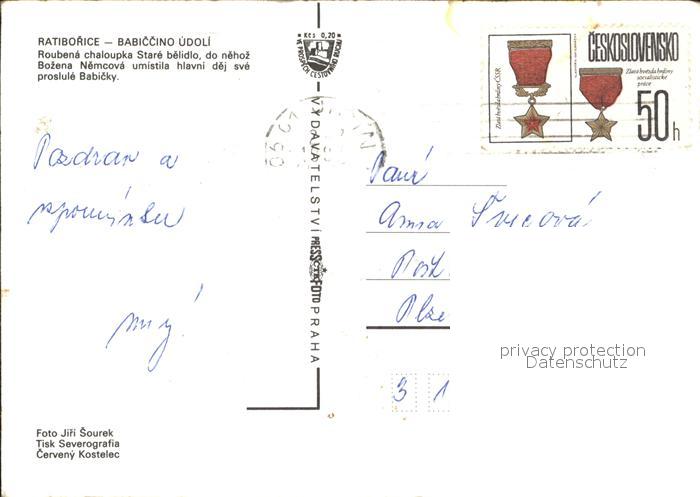 RATIBOŘICE — BABIČČINO ÚDOLÍ
Roubená chaloupka Staré bělidlo, do něhož
Božena Němcová umístila hlavní děj své
proslulé Babičky.
Pozdrav a
vzpomínku
Foto Jiří Šourek
Tisk Severografia
Červený Kostelec
Kčs 0,20
VE PROSPĚCH CESTOVNÍHO RUCHU
VYDAVATELSTVÍ PRESSFOTO PRAHA
ČTK
ČESKOSLOVENSKO
Zlatá hvězda hrdiny ČSSR
Zlatá hvězda hrdiny
socialistické
práce
50h
Paní
Anna Švecová
Pošt
Plze
3 1
privacy protection
Datenschutz